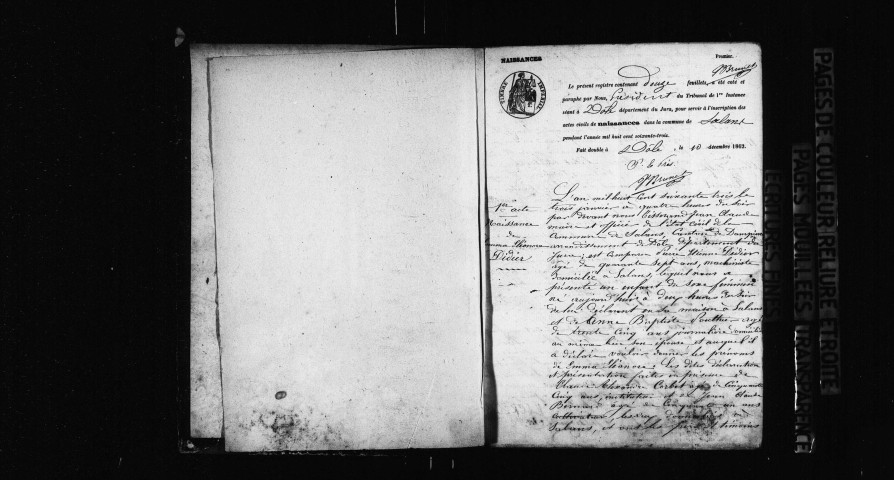 NAISSANCES
Premier.
PBrunet
TIMBRE IMPERIAL
Le présent registre contenant Douze feuillets, a été coté et
paraphé par Nous, Président du Tribunal de 1re Instance
séant à Dôle département du Jura, pour servir à l'inscription des
actes civils de naissances dans la commune de Salans
pendant l'année mil huit cent soixante-trois.
Fait double à Dôle, le 10 décembre 1862.
P. le Prés.
PBrunet
1er acte
Naissance
de
Emma Léonore
Didier
L'an mil huit cent soixante trois le
trois janvier à quatre heures du soir
par devant nous Jean Claude
maire et officier de l'état civil de la
commune de Salans, Canton de Dampierre
arrondissement de Dôle, Département du
Jura; est comparu Pierre Etienne Didier
âgé de quarante sept ans, machiniste
domicilié à Salans, lequel nous a
présenté un enfant du sexe féminin
né aujourd'hui à deux heures du soir
de lui déclarant en sa maison à Salans
et de Jeanne Baptiste Vouthier âgée
de trente cinq ans journalière domiciliée
au même lieu son épouse et auquel il
a déclaré vouloir donner les prénoms
de Emma Léonore; les dites déclaration
et présentation faites en présence de
Claude Alexandre Corbet âgé de cinquante
cinq ans, instituteur et de Jean Claude
Bernard âgé de cinquante un ans
cultivateur les deux domiciliés à
Salans, et ont les père et témoins
PAGES DE COULEUR
RELIURE ETROITE
PAGES MOUILLEES
TRANSPARENCE
ECRITURES FINES